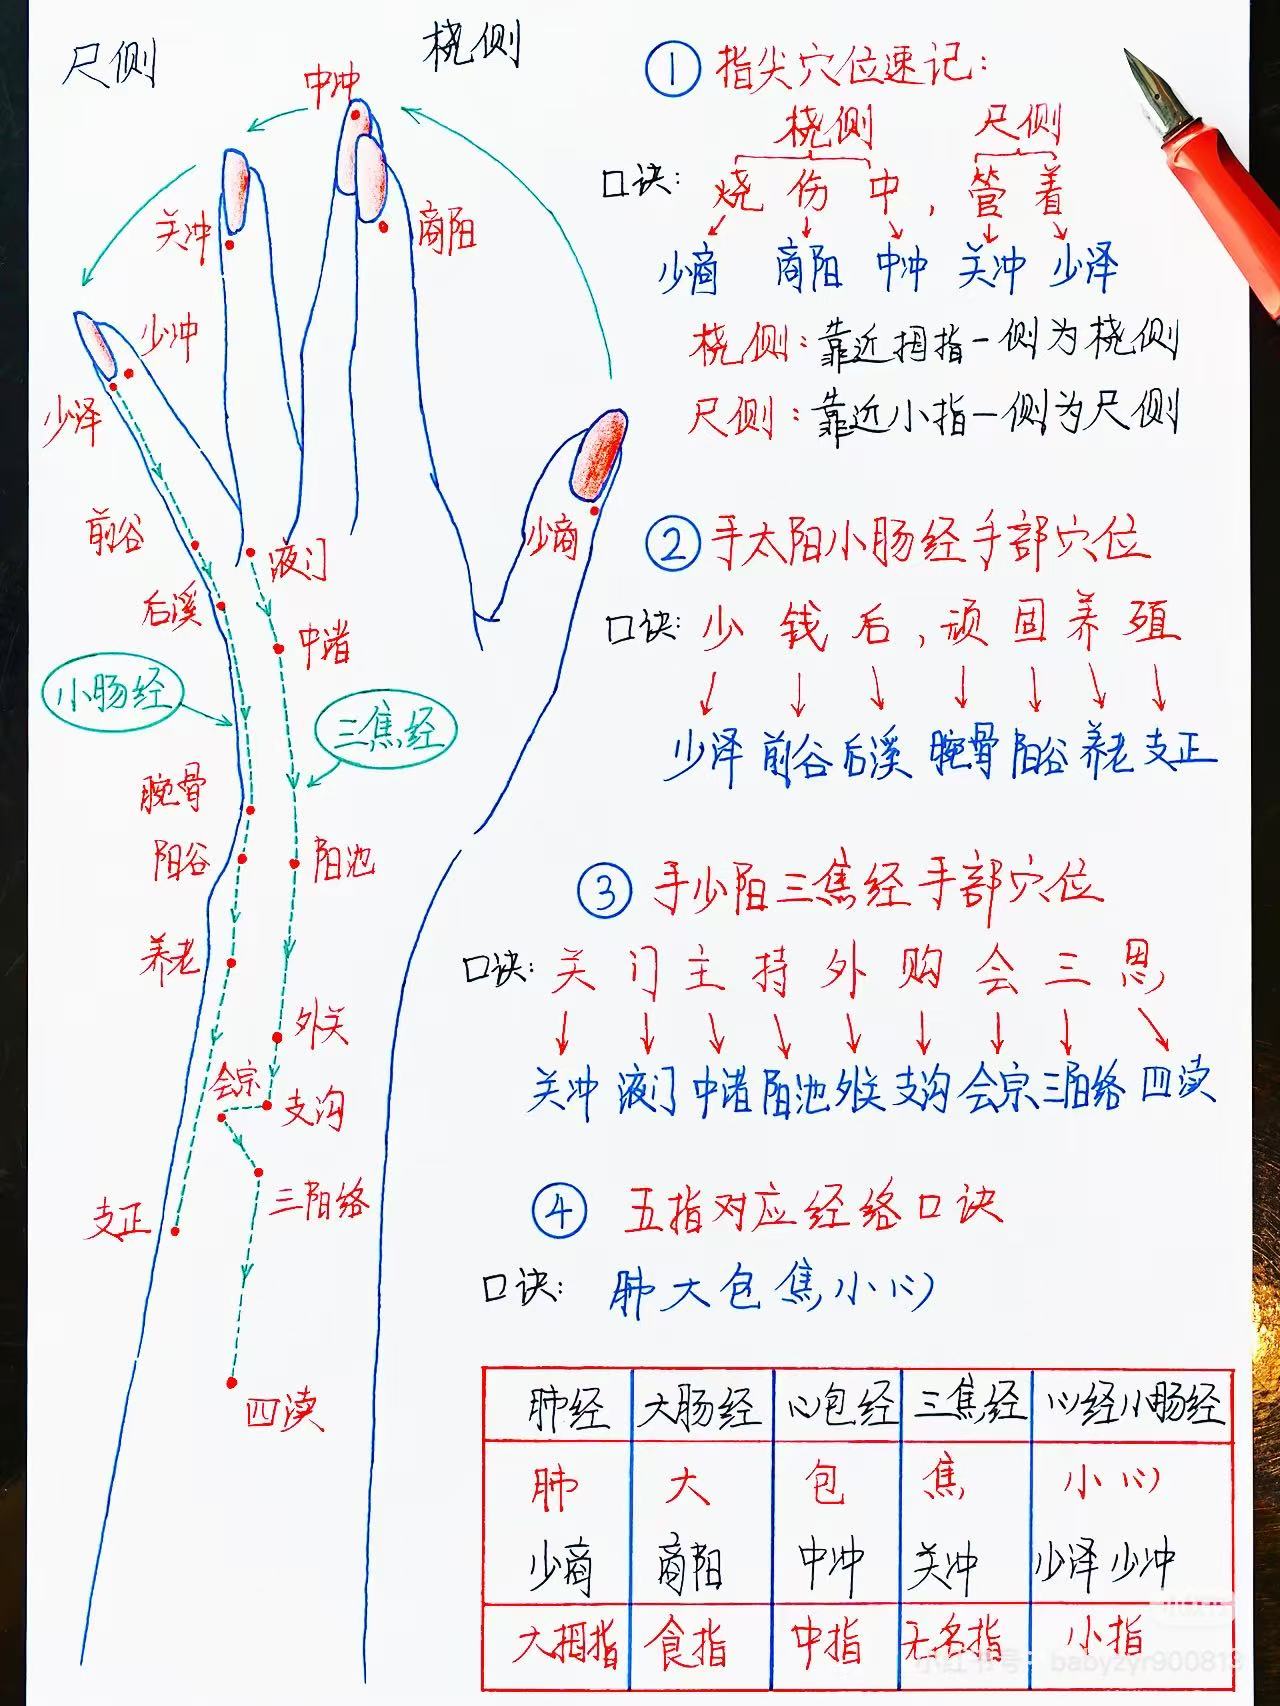 尺侧
桡侧
中冲
关冲
商阳
少冲
少泽
少商
前谷
液门
后溪
中渚
小肠经
三焦经
腕骨
阳谷
阳池
养老
外关
会宗
支沟
支正
三阳络
四渎
① 指尖穴位速记:
桡侧 尺侧
口诀: 烧 伤 中, 管 着
少商 商阳 中冲 关冲 少泽
桡侧: 靠近拇指一侧为桡侧
尺侧: 靠近小指一侧为尺侧
② 手太阳小肠经手部穴位
口诀: 少 钱 后, 顽 固 养 殖
少泽 前谷 后溪 腕骨 阳谷 养老 支正
③ 手少阳三焦经手部穴位
口诀: 关 门 主 持 外 购 会 三 恩
关冲 液门 中渚 阳池 外关 支沟 会宗 三阳络 四渎
④ 五指对应经络口诀
口诀: 肺大包焦小心
肺经 大肠经 心包经 三焦经 心经小肠经
肺 大 包 焦 小心
少商 商阳 中冲 关冲 少泽 少冲
大拇指 食指 中指 无名指 小指
小红书
小红书号: babyzyr900813